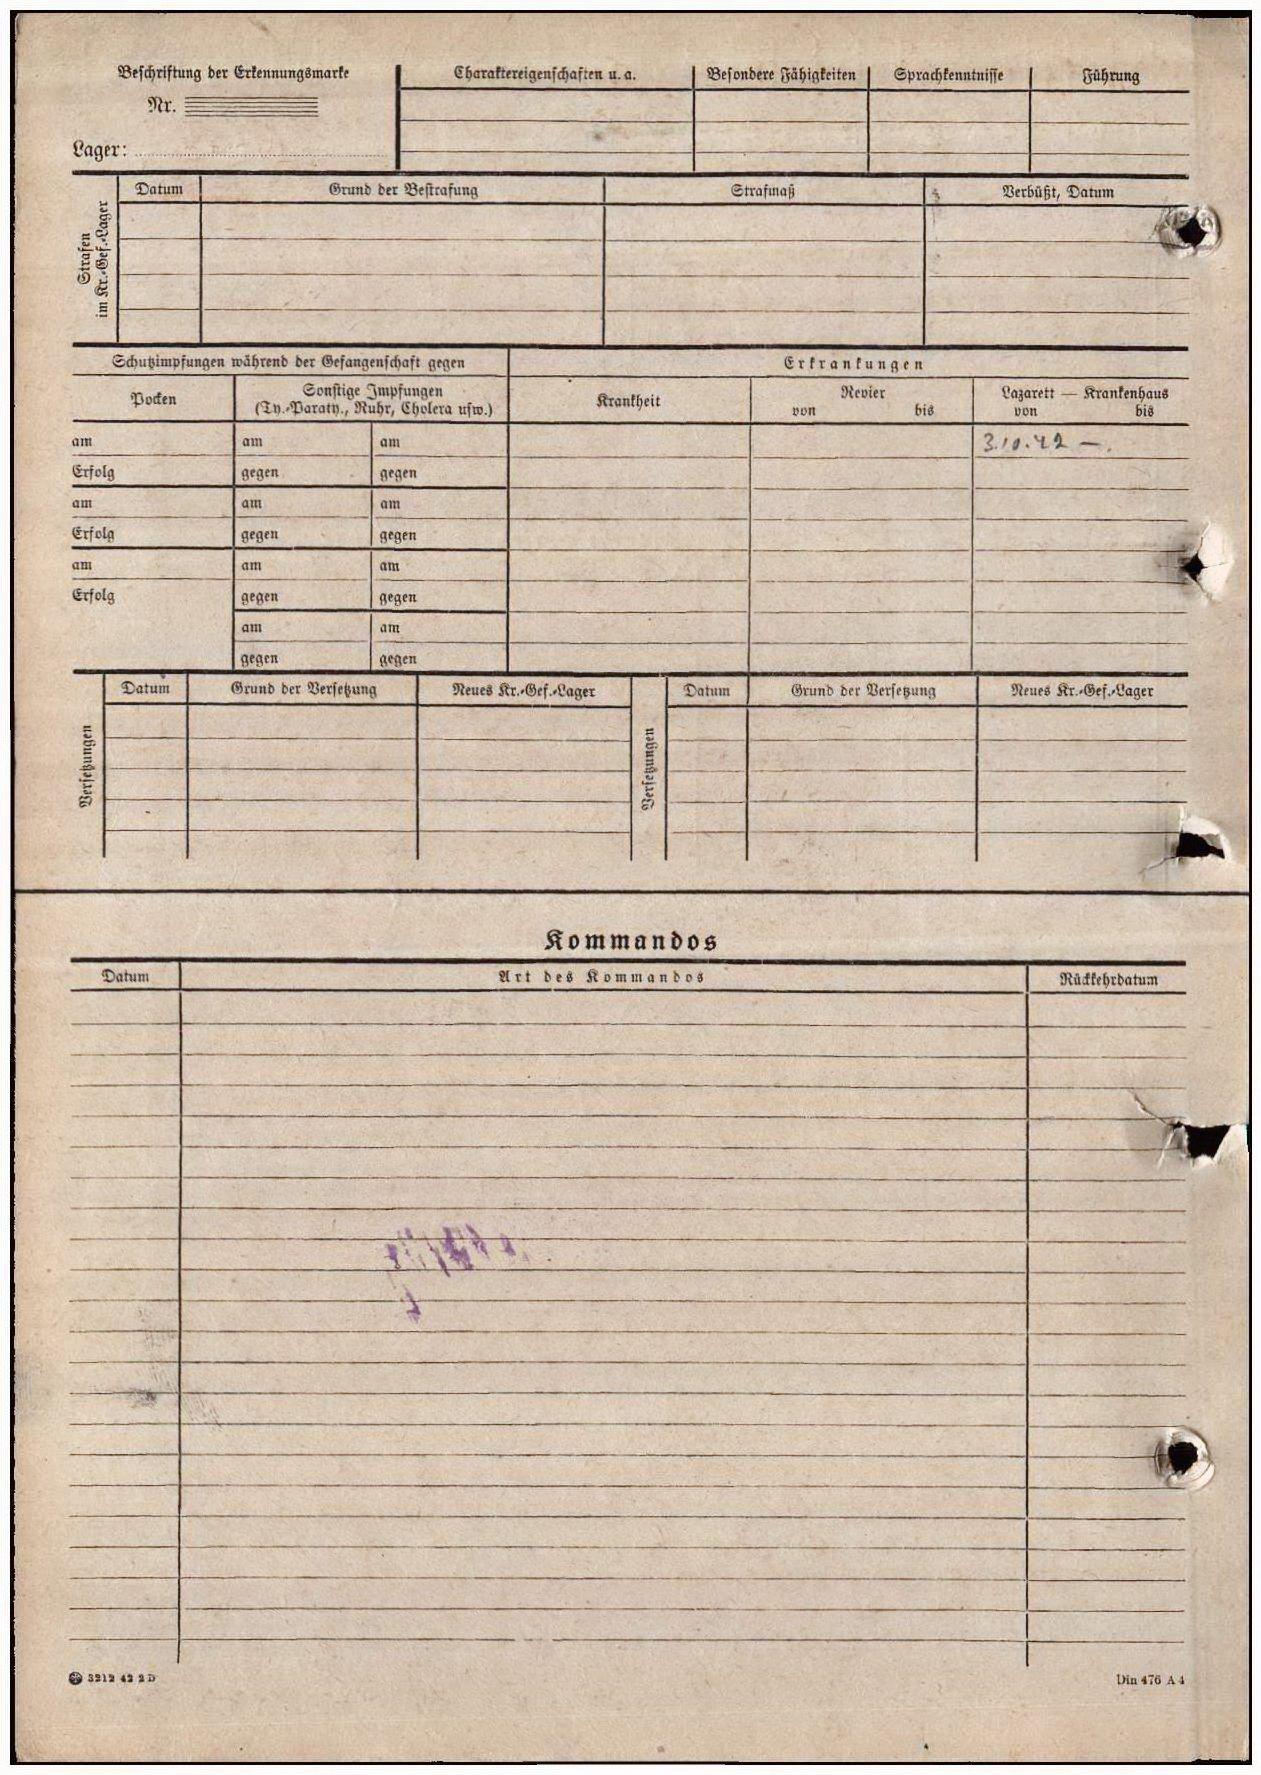 Beschriftung der Erkennungsmarke
Nr.
Lager:
Charaktereigenschaften u. a. Besondere Fähigkeiten Sprachkenntnisse Führung
Strafen
im Kr.-Gef.-Lager
Datum Grund der Bestrafung Strafmaß Verbüßt, Datum
Schutzimpfungen während der Gefangenschaft gegen Erkrankungen
Pocken Sonstige Impfungen
(Ty.-Paraty., Ruhr, Cholera usw.)
Krankheit Revier Lazarett — Krankenhaus
von bis von bis
am am am 3.10.42 —.
Erfolg gegen gegen
am am am
Erfolg gegen gegen
am am am
Erfolg gegen gegen
am am
gegen gegen
Versetzungen
Datum Grund der Versetzung Neues Kr.-Gef.-Lager
Versetzungen
Datum Grund der Versetzung Neues Kr.-Gef.-Lager
Kommandos
Datum Art des Kommandos Rückkehrdatum
3212 42 2 D Din 476 A 4